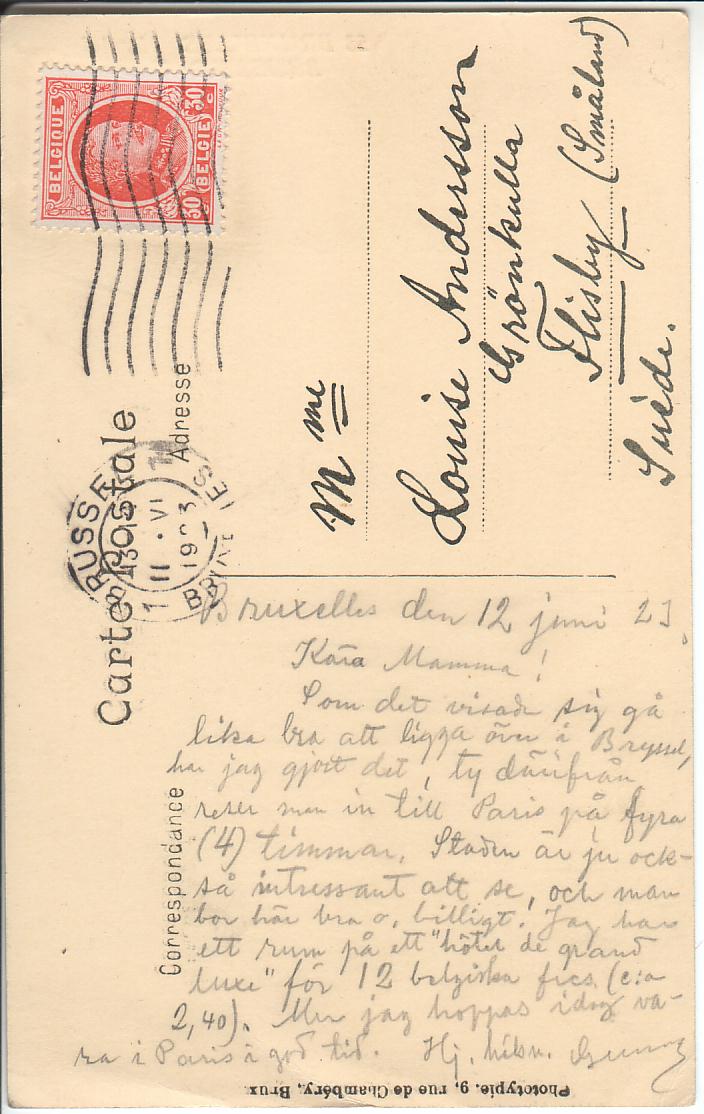 BELGIQUE
BELGIE
30 c
30 c
BRUXELLES
13-
11 · VI
1923
BRUSSEL
Carte Postale
Adresse
Mme
Louise Andersson
Grönkulla
Flisby (Småland)
Suède.
Correspondance
Bruxelles den 12 juni 23.
Kära Mamma!
Som det visade sig gå
lika bra att ligga över i Bryssel,
har jag gjort det, ty därifrån
reser man in till Paris på fyra
(4) timmar. Staden är ju ock-
så intressant att se, och man
bor här bra o. billigt. Jag har
ett rum på ett "hôtel de grand
luxe" för 12 belgiska frcs. (c:a
2,40). Men jag hoppas idag va-
ra i Paris i god tid. Hj. hälsn.
Phototypie. 9, rue de Chambéry, Brux